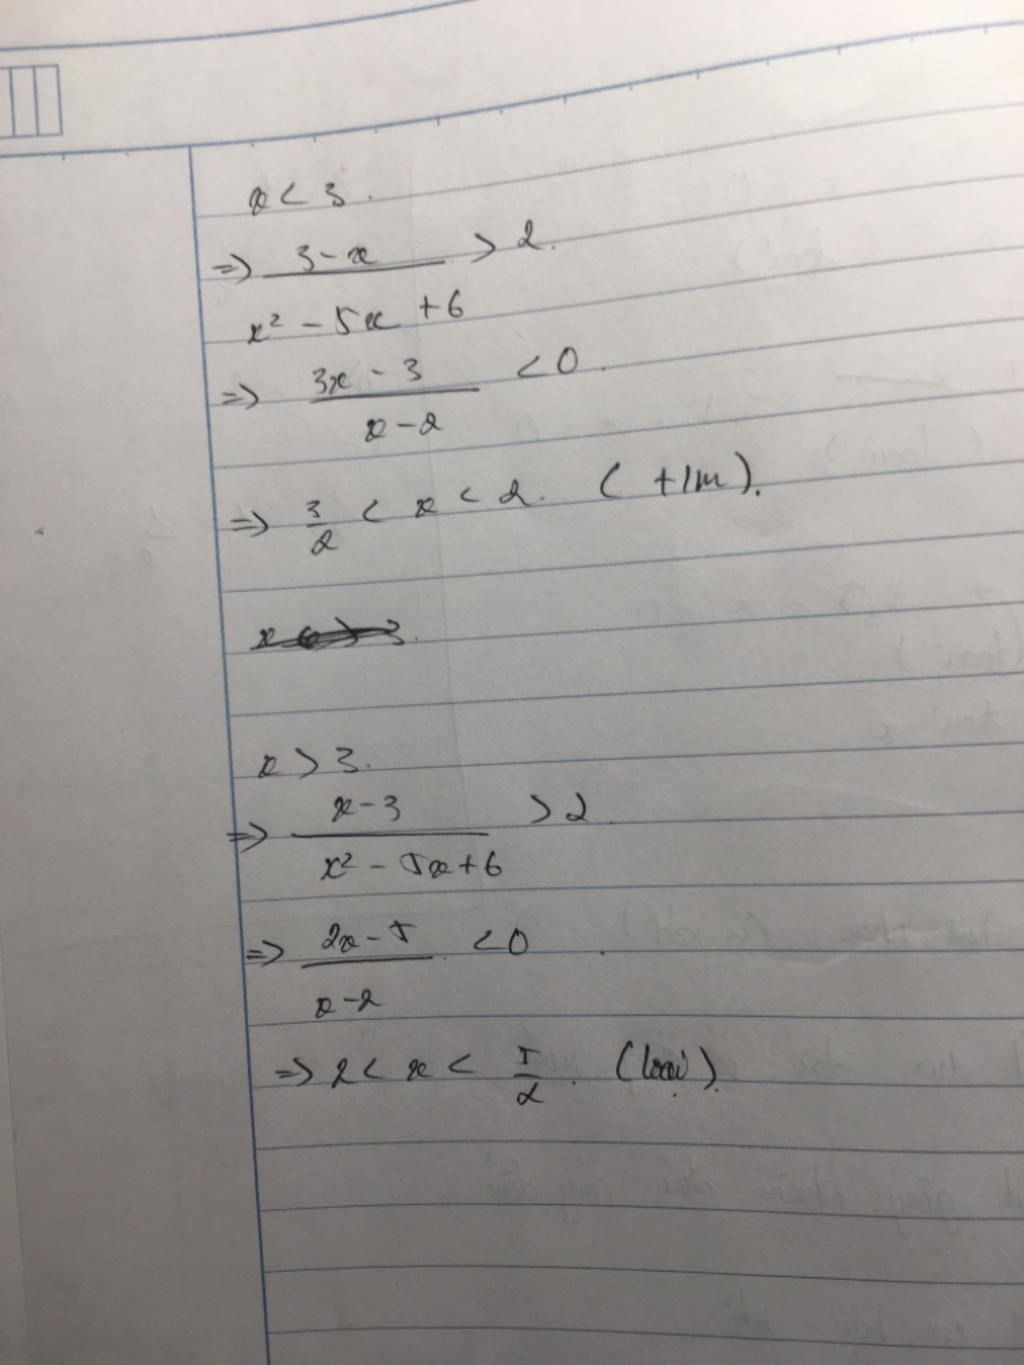 x < 3.
=> (3 - x)/(x² - 5x + 6) > 2.
=> (3x - 3)/(x - 2) < 0.
=> 3/2 < x < 2. (t/m).
x > 3.
=> (x - 3)/(x² - 5x + 6) > 2
=> (2x - 5)/(x - 2) < 0.
=> 2 < x < 5/2. (loại).